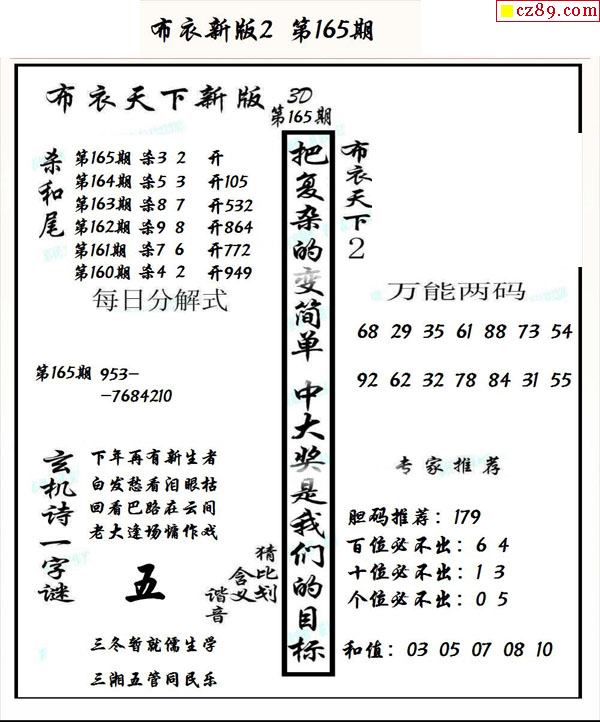 cz89.com
布衣新版2 第165期
布衣天下新版 3D
第165期
杀和尾
第165期 杀3 2 开
第164期 杀5 3 开105
第163期 杀8 7 开532
第162期 杀9 8 开864
第161期 杀7 6 开772
第160期 杀4 2 开949
每日分解式
第165期 953-
-7684210
玄机诗一字谜
下年再有新生者
白发愁看泪眼枯
回看巴路在云间
老大逢场慵作戏
五
猜比划
含义
谐音
三冬暂就儒生学
三湘五管同民乐
把复杂的变简单 中大奖是我们的目标
布衣天下2
万能两码
68 29 35 61 88 73 54
92 62 32 78 84 31 55
专家推荐
胆码推荐：179
百位必不出：6 4
十位必不出：1 3
个位必不出：0 5
和值：03 05 07 08 10